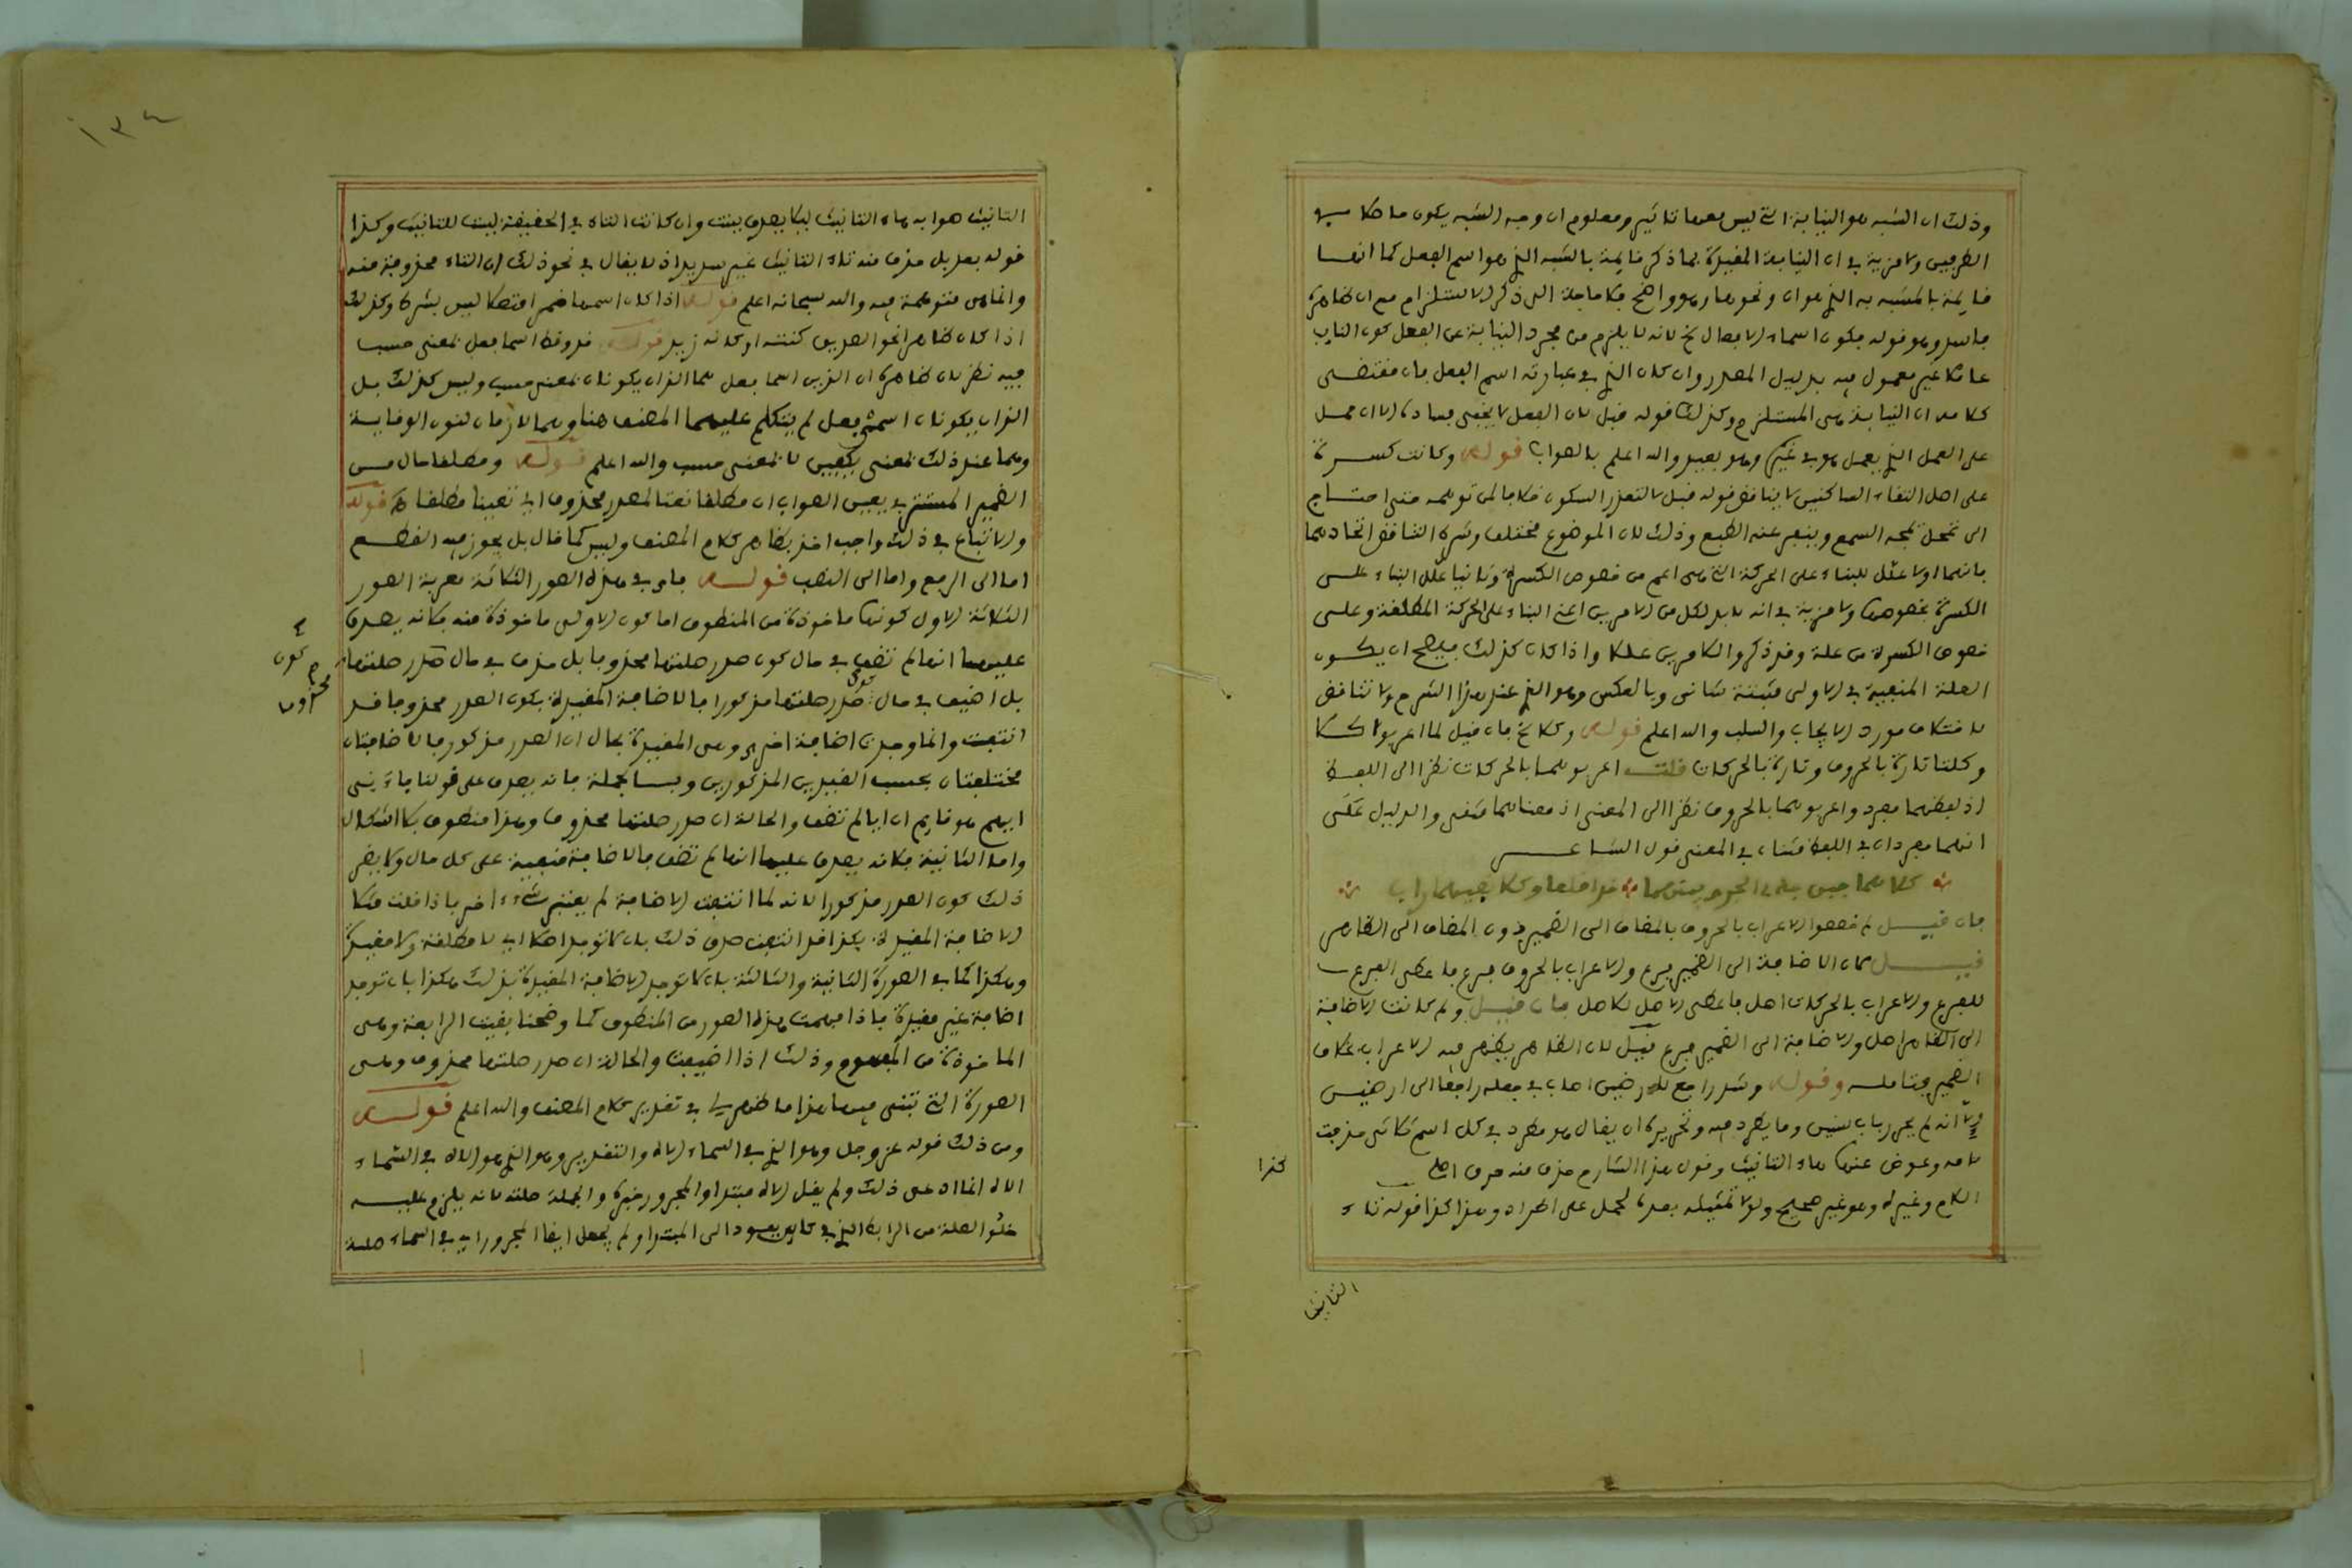 وذلك ان الشبه هو النيابة التي ليس معها تاثير ومعلوم ان وجه الشبه يكون حاصلا في
الطرفين ولا مزية في ان النيابة المفيدة بما ذكر قايمة بالشبه الذي هو اسم الفعل كما انها
قايمة بالمشبه به الذي هو ان ونحوها وهو واضح فلا حاجة الى ذكر الاستلزام مع ان ظاهره
فاسد وهو قوله فيكون اسماء الافعال الخ لانه لا يلزم من مجرد النيابة عن الفعل كون النايب
عاملا غير معمول فيه بدليل المصدر وان كان الذي في عبارته اسم الفعل فان مقتضى
كلامه ان النيابة هي المستلزم وكذلك قوله قبل لان الفعل لا يخفى فساده لان محل
على العمل الذي يعمل هو في غيره وهو بعيد والله اعلم بالصواب قوله وكانت كسرة
على اصل التقاء الساكنين لا يناقض قوله قبل لا لتعذر السكون خلافا لمن توهمه حتى احتاج
الى تمحل يمجه السمع وينفر عنه الطبع وذلك لان الموضوع مختلف وشرط التناقض اتحادهما
فانهما اولا علل للبناء على الحركة التي هي اعم من خصوص الكسرة وثانيا علل البناء على
الكسرة بخصوصها ولا مزية في انه لا بد لكل من الامرين اعني البناء على الحركة المطلقة وعلى
خصوص الكسرة من علة وقد ذكر والامرين عللا واذا كان كذلك فيصح ان يكون
العلة المنفية في الاولى مثبتة ثاني وبالعكس وهو الذي عند هذا الشرح ولا تناقض
لاختلاف مورد الايجاب والسلب والله اعلم قوله وكلا الخ فان قيل لما اعربوا كلا
وكلتا تارة بالحروف وتارة بالحركات قلت اعربوهما بالحركات نظرا الى اللفظ
اذ لفظهما مفرد واعربوهما بالحروف نظرا الى المعنى اذ معناهما مثنى والدليل على
انهما مفردان في اللفظ مثنان في المعنى قول الشاعر
كلاهما حين جد الجري بينهما قد اقلعا وكلا انفيهما رابي
فان قيل لم خصصوا الاعراب بالحروف بالمضاف الى الضمير دون المضاف الى الظاهر
قيل لان الاضافة الى الضمير فرع والاعراب بالحروف فرع فاعطى الفرع
للفرع والاعراب بالحركات اصل فاعطى الاصل للاصل فان قيل ولم كانت الاضافة
الى الظاهر اصل والاضافة الى الضمير فرع قيل لان الظاهر يظهر فيه الاعراب بخلاف
الضمير فتامله وقوله وشذ راجع لارضين اصاب في جعله راجعا الى ارضين
الا انه لم يحرر باب سنين وما يطرد فيه وتحريره ان يقال هو مطرد في كل اسم ثلاثي حذفت
لامه وعوض عنها هاء التانيث وقول هذا الشارح حذف منه حرف اصلي
اللام وغيره وهو غير صحيح ولولا تمثيله بعده لحمل على المراد وهذا كذا قوله تاء
كذا
التانيث
١٣٤
التانيث صوابه هاء التانيث ليلا يصدق ببنت وان كانت التاء في الحقيقة ليست للتانيث وكذا
قوله بعد بل حذف منه تاء التانيث غير سديد اذ لا يقال في نحو ذلك ان التاء محذوفة منه
وانما هي متوهمة فيه والله سبحانه اعلم قوله اذا كان اسمها ضميرا متصلا ليس بشرط وكذلك
اذا كان ظاهرا نحو الصديق كنته او كانه زيد قوله قد وقط اسما فعل بمعنى حسب
فيه نظر لان ظاهره ان الذين اسما فعل هما اللذان يكونان بمعنى حسب وليس كذلك بل
اللذان يكونان اسمي فعل لم يتكلم عليهما المصنف هنا وهما اللازمان لنون الوقاية
وهما عند ذلك بمعنى يكفيني لا بمعنى حسب والله اعلم قوله ومطلقا حال من
الضمير المستتر في يعين الصواب ان مطلقا نعتا لمصدر محذوف اي تعيينا مطلقا قوله
والاتباع في ذلك واجب اخذ بظاهر كلام المصنف وليس كما قال بل يجوز فيه القطع
اما الى الرفع واما الى النصب قوله فاي في هذه الصور الثلاثة معربة الصور
الثلاثة الاول كونها ماخوذة من المنطوق اما كون الاولى ماخوذة منه فلانه يصدق
عليها انها لم تضف في حال كون صدر صلتها محذوفا بل حذف في حال صدر صلتها
كون
محذوف
بل اضيف في حال كون صدر صلتها مذكورا فالاضافة المقيدة بكون الصدر محذوفا قد
انتفت وانما وجدت اضافة اخرى وهي المقيدة بحال ان الصدر مذكور فالاضافتان
مختلفتان بحسب القيدين المذكورين وبالجملة فانه يصدق على قولنا جاءني
ايهم هو قايم ان ايا لم تضف والحالة ان صدر صلتها محذوف وهذا منطوق بلا اشكال
واما الثانية فلانه يصدق عليها انها لم تضف فالاضافة منفية على كل حال ولا يضر
ذلك كون الصدر مذكورا لانه لما انتفت الاضافة لم يعتبر شيء اخر فاذا قلت مثلا
الاضافة المقيدة بكذا قد انتفت صدق ذلك بان لا توجد اصلا اي لا مطلقة ولا مقيدة
وهكذا كما في الصورة الثانية والثالثة بان لا توجد الاضافة المقيدة بذلك هكذا بان توجد
اضافة غير مقيدة فاذا فهمت هذه الصور من المنطوق كما وضحنا بقيت الرابعة وهي
الماخوذة من المفهوم وذلك اذا اضيفت والحالة ان صدر صلتها محذوف وهي
الصورة التي تبنى فيها هذا ما ظهر لي في تقرير كلام المصنف والله اعلم قوله
ومن ذلك قوله عز وجل وهو الذي في السماء اله والتقدير وهو الذي هو اله في السماء
اله انما ادعى ذلك ولم يقل اله مبتدا والمجرور خبره والجملة صلته لانه يلزم عليه
خلو الصلة من الرابط الذي يعود الى المبتدا ولم يجعل ايضا المجرور اي في السماء صلة